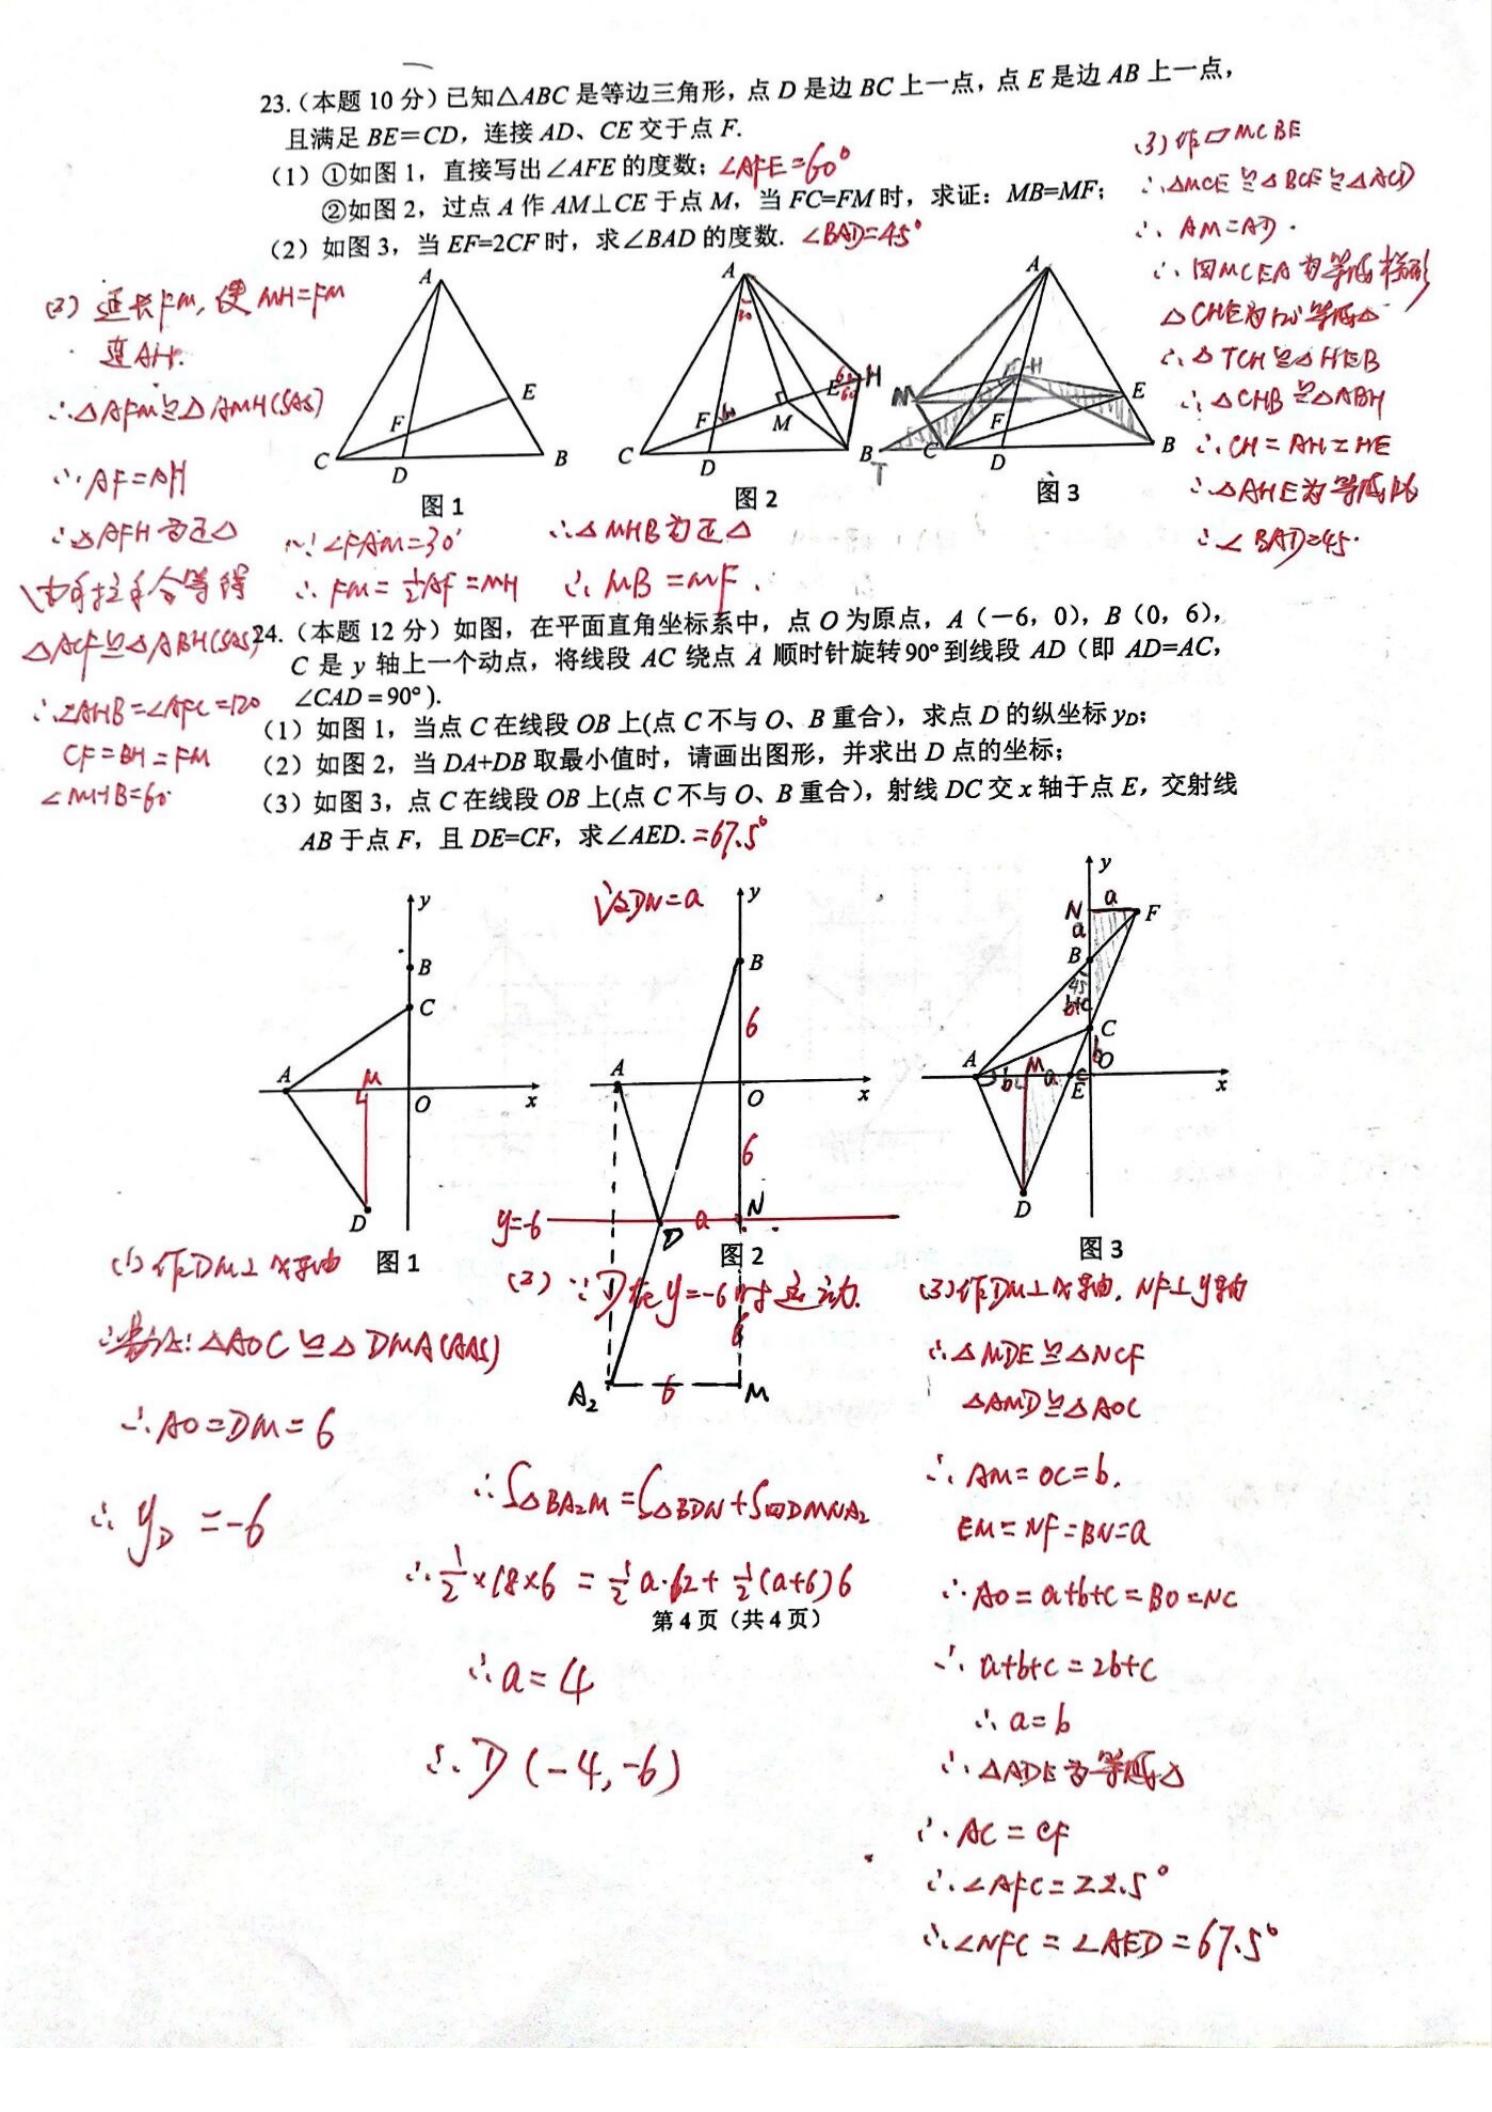 23.(本题 10 分)已知△ABC 是等边三角形,点 D 是边 BC 上一点,点 E 是边 AB 上一点,
且满足 BE=CD,连接 AD、CE 交于点 F.
(1)①如图 1,直接写出∠AFE 的度数; ∠AFE=60°
②如图 2,过点 A 作 AM⊥CE 于点 M,当 FC=FM 时,求证:MB=MF;
(2)如图 3,当 EF=2CF 时,求∠BAD 的度数. ∠BAD=45°
(3)作▱MCBE
∴△MCE≌△BCE≌△ACD
∴AM=AD.
∴四MCEA为等腰梯形
△CHE为120°等腰△
∴△TCH≌△HEB
∴△CHB≌△ABH
∴CH=AH=HE
∴△AHE为等腰
∴∠BAD=45°
(2) 延长FM,使MH=FM
连AH.
∴△AFM≌△AMH(SAS)
∴AF=AH
∴△AFH为正△
由手拉手全等得
△ACF≌△ABH(SAS)
∴∠AHB=∠AFC=120
CF=BH=FM
∠MHB=60°
A
E
F
C
D
B
图 1
A
30
60
60
60
H
E
F
M
C
D
B
图 2
A
H
M
E
F
T
C
D
B
图 3
∵∠FAM=30°
∴FM=½AF=MH
∴△MHB为正△
∴MB=MF.
24.(本题 12 分)如图,在平面直角坐标系中,点 O 为原点,A(-6,0),B(0,6),
C 是 y 轴上一个动点,将线段 AC 绕点 A 顺时针旋转90°到线段 AD(即 AD=AC,
∠CAD=90°).
(1)如图 1,当点 C 在线段 OB 上(点 C 不与 O、B 重合),求点 D 的纵坐标 yD;
(2)如图 2,当 DA+DB 取最小值时,请画出图形,并求出 D 点的坐标;
(3)如图 3,点 C 在线段 OB 上(点 C 不与 O、B 重合),射线 DC 交 x 轴于点 E,交射线
AB 于点 F,且 DE=CF,求∠AED. =67.5°
y
B
C
A
M
O
x
D
图 1
设DN=a
y
B
6
A
O
x
6
y=-6
D
a
N
图 2
6
A₂
6
M
y
N
a
F
a
B
45
b+c
C
b
A
M
O
b
a
c
E
x
D
图 3
(1)作DM⊥x轴
∴易证:△AOC≌△DMA(AAS)
∴AO=DM=6
∴yD=-6
(2)∵D在y=-6时运动.
∴S△BA₂M=S△BDN+S四DMNA₂
∴½×18×6=½a·12+½(a+6)6
第 4 页(共 4 页)
∴a=4
∴D(-4,-6)
(3)作DM⊥x轴,NF⊥y轴
∴△MDE≌△NCF
△AMD≌△AOC
∴AM=OC=b.
EM=NF=BN=a
∴AO=a+b+c=BO=NC
∴a+b+c=2b+c
∴a=b
∴△ADE为等腰△
∴AC=CF
∴∠AFC=22.5°
∴∠NFC=∠AED=67.5°